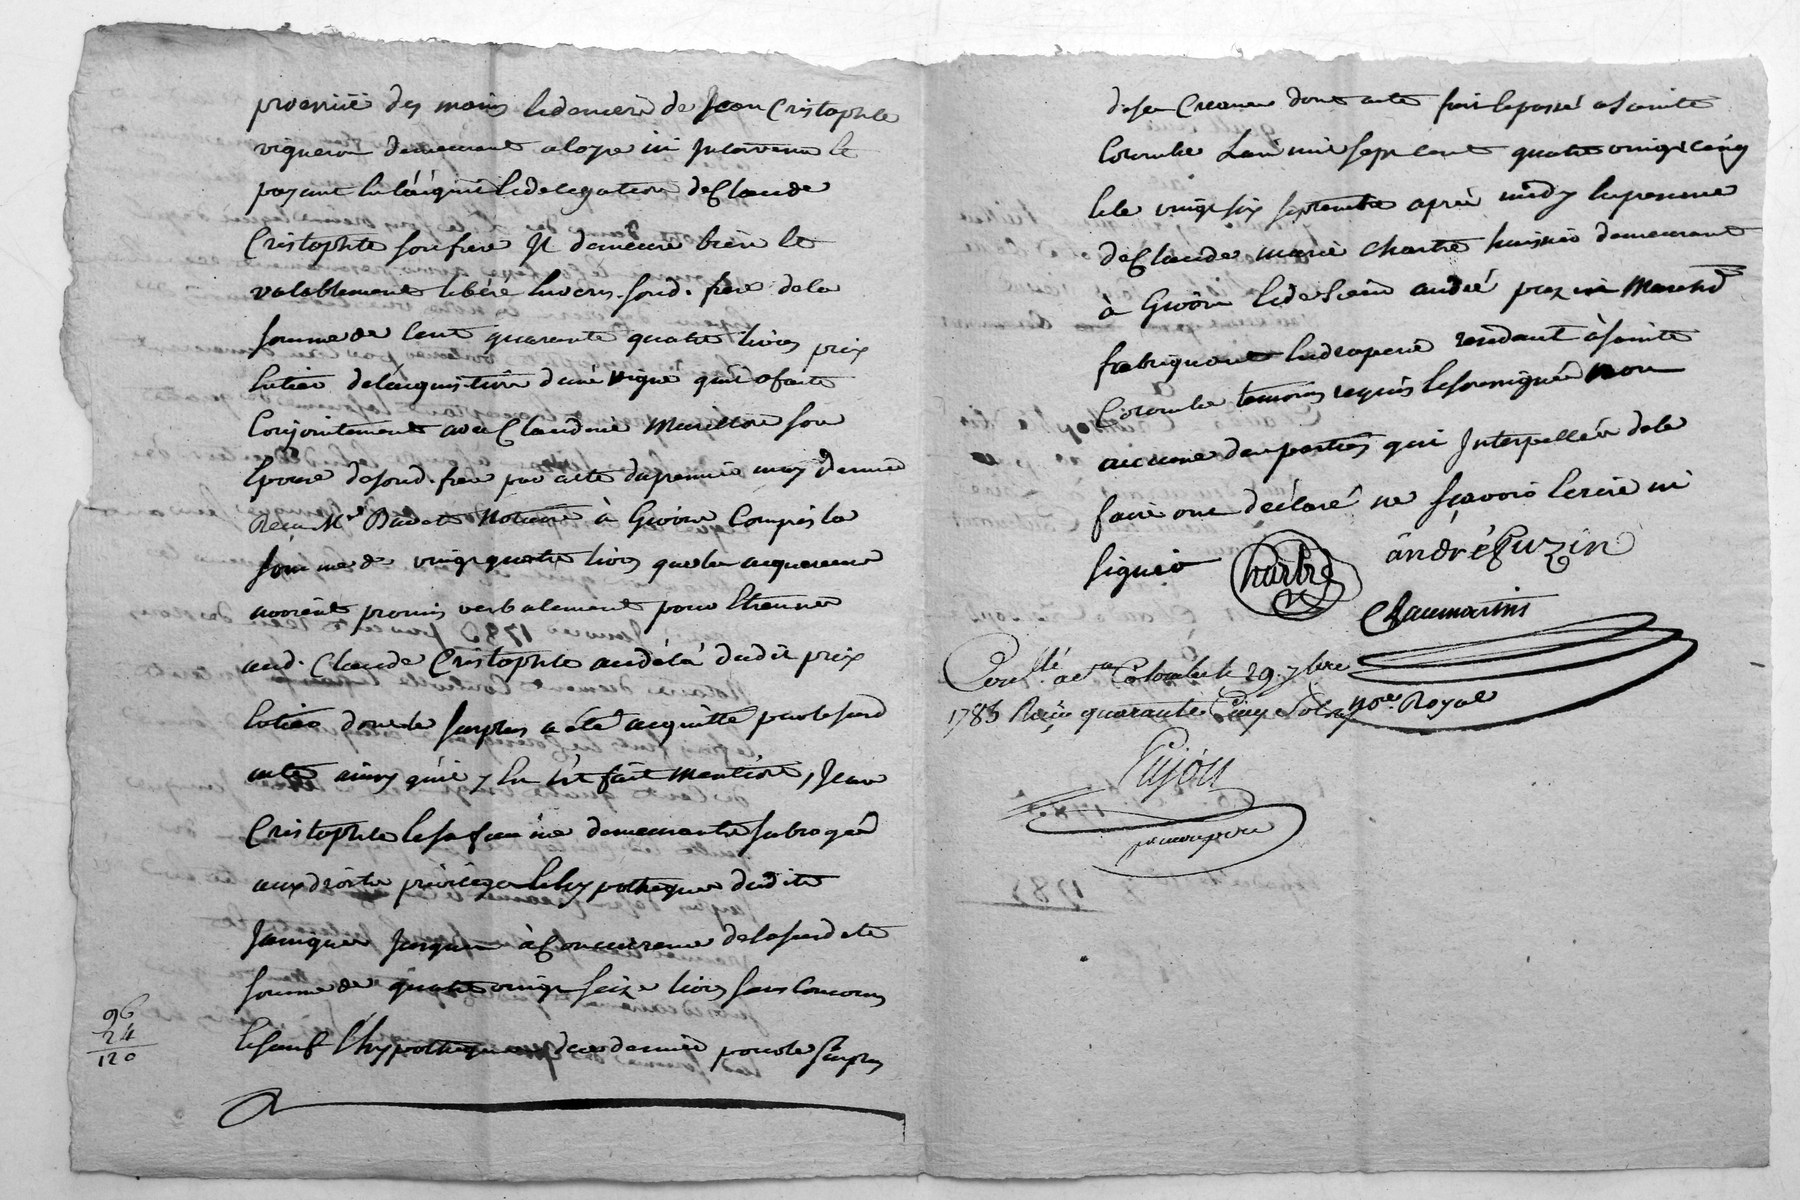 proprieté des mains & deniers de Jean Cristophle
vigneron demeurant a loyre ici Intervenu &
payant en l'acquit & delegation de Claude
Cristophle son frere Il demeure bien &
valablement libéré envers sond. frere de la
somme de Cent quarante quatre livres prix
entier de l'acquisition d'une vigne qu'il a faite
Conjointement avec Claudine Murillon son
Epouse de sond. frere par acte du premier may dernier
Reçu Me Notaire à Givors Compris la
somme de vingt quatre livres que les acquereurs
avoient promis verbalement pour Etrennes
aud. Claude Cristophle au dela dudit prix
Entier dont le surplus a été acquitté par le susd
acte ainsy qu'il y en est fait Mention, Jean
Cristophle & sa femme demeurants subrogés
aux droits privileges & hypotheques dudit
Jusques à Concurrence de la susdite
somme de quatre vingt seize livres sans Concours
& sauf l'hypotheque de ce dernier pour le surplus
96
24
120
de sa Creance dont acte fait & passé a Sainte
Colombe L'an mil sept cent quatre vingt cinq
& le vingt six septembre après midy en presence
de Claude marie Chartre huissier demeurant
à Givors & de Sieur andré Marchd
fabriquant en draperie residant à Sainte
Colombe temoins requis & soussignés non
aucune des parties qui Interpellées de le
faire ont déclaré ne sçavoir Ecrire ni
signer Chartre andré
Chaumartin
Conllé. a Ste Colombe le 29. 7bre
1785 Reçu quarante Cinq Sols nore. Royal
Pujou